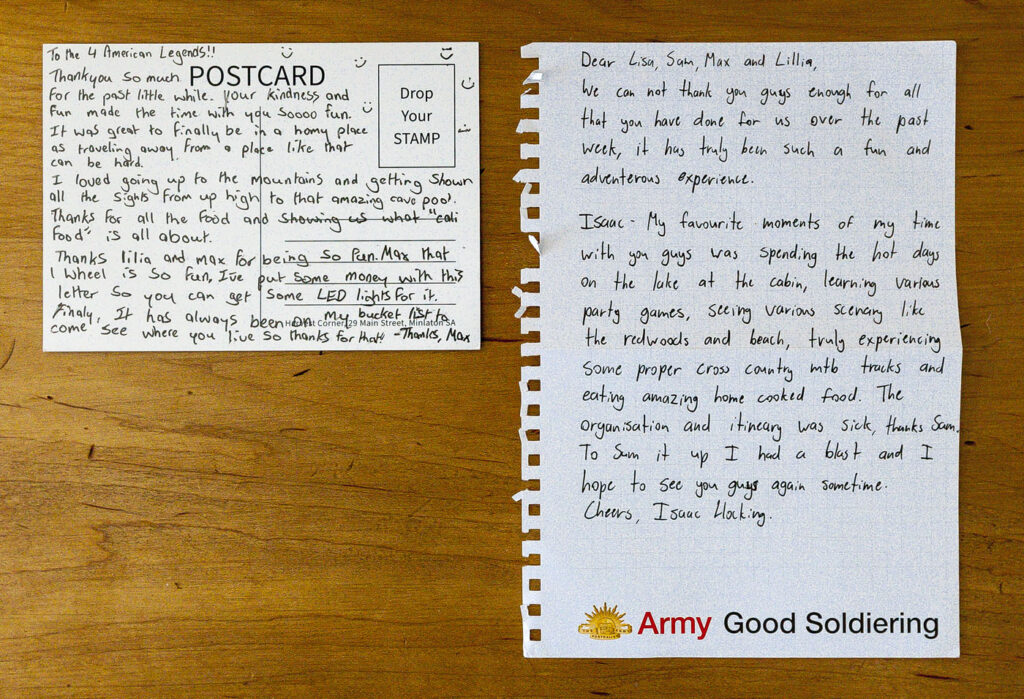 To the 4 American Legends!!
Thankyou so much
POSTCARD
for the past little while. Your kindness and
fun made the time with you soooo fun.
It was great to finally be in a homy place
as traveling away from a place like that
can be hard.
Drop
Your
STAMP
I loved going up to the mountains and getting shown
all the sights from up high to that amazing cave pool.
Thanks for all the food and showing us what "cali
food" is all about.
Thanks lilia and max for being so fun. Max that
1 wheel is so fun, I've put some money with this
letter so you can get some LED lights for it.
Finaly, It has always been on my bucket list to
Corner, 29 Main Street, Minlaton SA
come see where you live so thanks for that! -Thanks, Max
Dear Lisa, Sam, Max and Lillia,
We can not thank you guys enough for all
that you have done for us over the past
week, it has truly been such a fun and
adventerous experience.
Isaac - My favourite moments of my time
with you guys was spending the hot days
on the lake at the cabin, learning various
party games, seeing various scenary like
the redwoods and beach, truly experiencing
some proper cross country mtb tracks and
eating amazing home cooked food. The
organisation and itineary was sick, thanks Sam.
To sum it up I had a blast and I
hope to see you guys again sometime.
Cheers, Isaac Hocking.
Army Good Soldiering